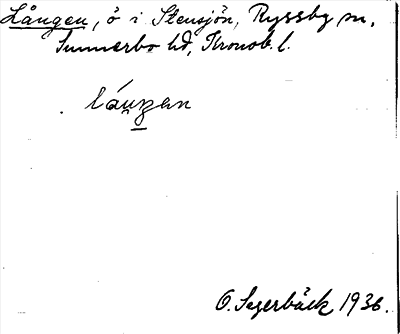 Lången, ö i Stensjön, Ryssby sn,
Sunnerbo hd, Kronob. l.
O. Segerbäck 1936.